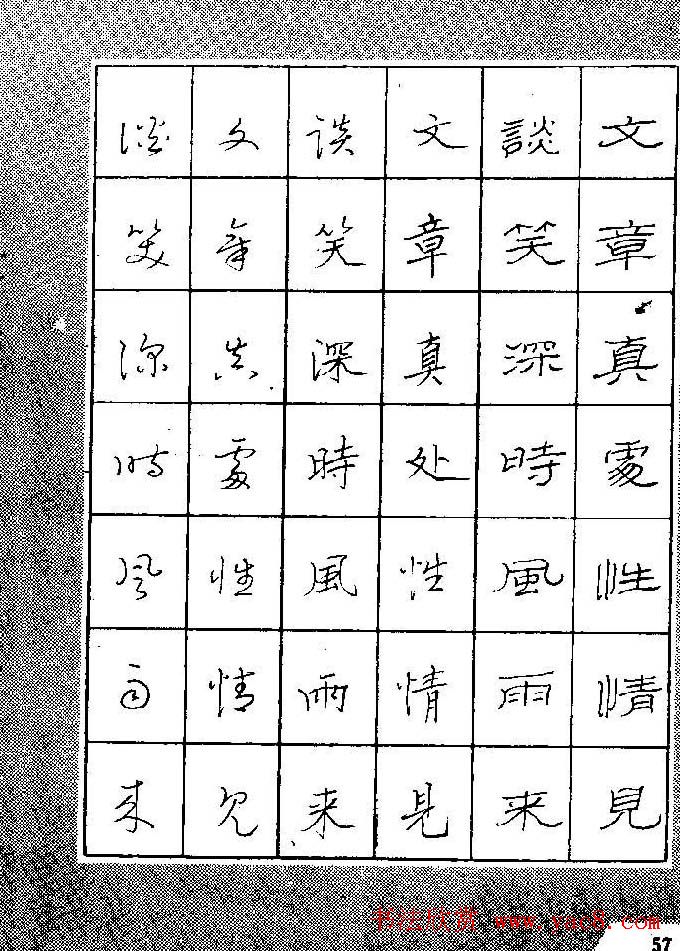 文章真處性情見
談笑深時風雨来
文章真处性情見
谈笑深時風雨来
文章真處性情见
谈笑深时风雨来
书法欣赏 www.yac8.com
57